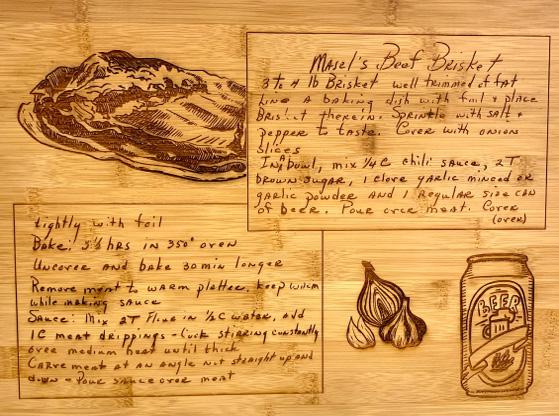 Masel's Beef Brisket
3 to 4 lb Brisket well trimmed of fat
Line A baking dish with foil + place
Brisket therein. Sprinkle with salt +
pepper to taste. Cover with onion
slices
In A Bowl, mix 1/4 C chili sauce, 2T
brown sugar, 1 clove garlic minced or
garlic powder and 1 regular size can
of beer. Pour over meat. Cover
(over)
tightly with foil
Bake: hrs in 350° oven
Uncover and bake 30 min longer
Remove meat to warm platter. keep warm
while making sauce
Sauce: Mix 2T Flour in 1/2 C water, add
1C meat drippings - Cook stirring constantly
over medium heat until thick
Carve meat at an angle not straight up and
down - Pour sauce over meat
BEER